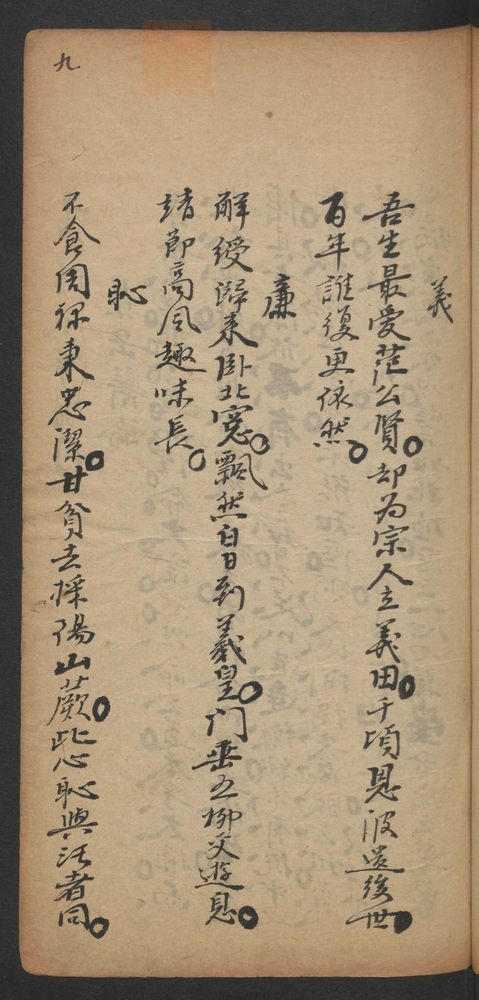 義
吾生最愛范公賢。却为宗人立義田。千頃恩波遺後世。
百年誰復更依然。
廉
解綬歸来卧北窓。飄然白日到羲皇。门垂五柳交遊息。
靖節高风趣味長。
恥
不食周粟秉忠潔。甘貧去採陽山蕨。此心恥與汙者同。
九